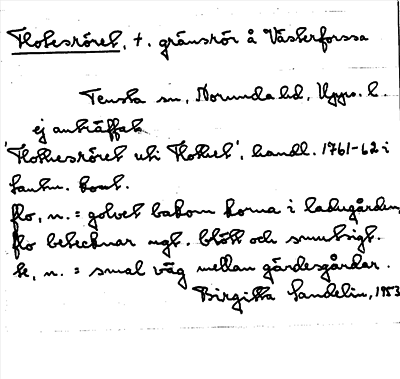 Flokesröret, t. gränsrör å Västerforssa
Tensta sn, Norunda hd, Upps. l.
ej anträffat
'Flokiesröret uti Flokiet', handl. 1761-62 i
lantm. kont.
flo, n. = golvet bakom korna i ladugården,
flo betecknar ngt. blött och smutsigt.
k, n. = smal väg mellan gärdesgårdar.
Birgitta Sandelin, 1953